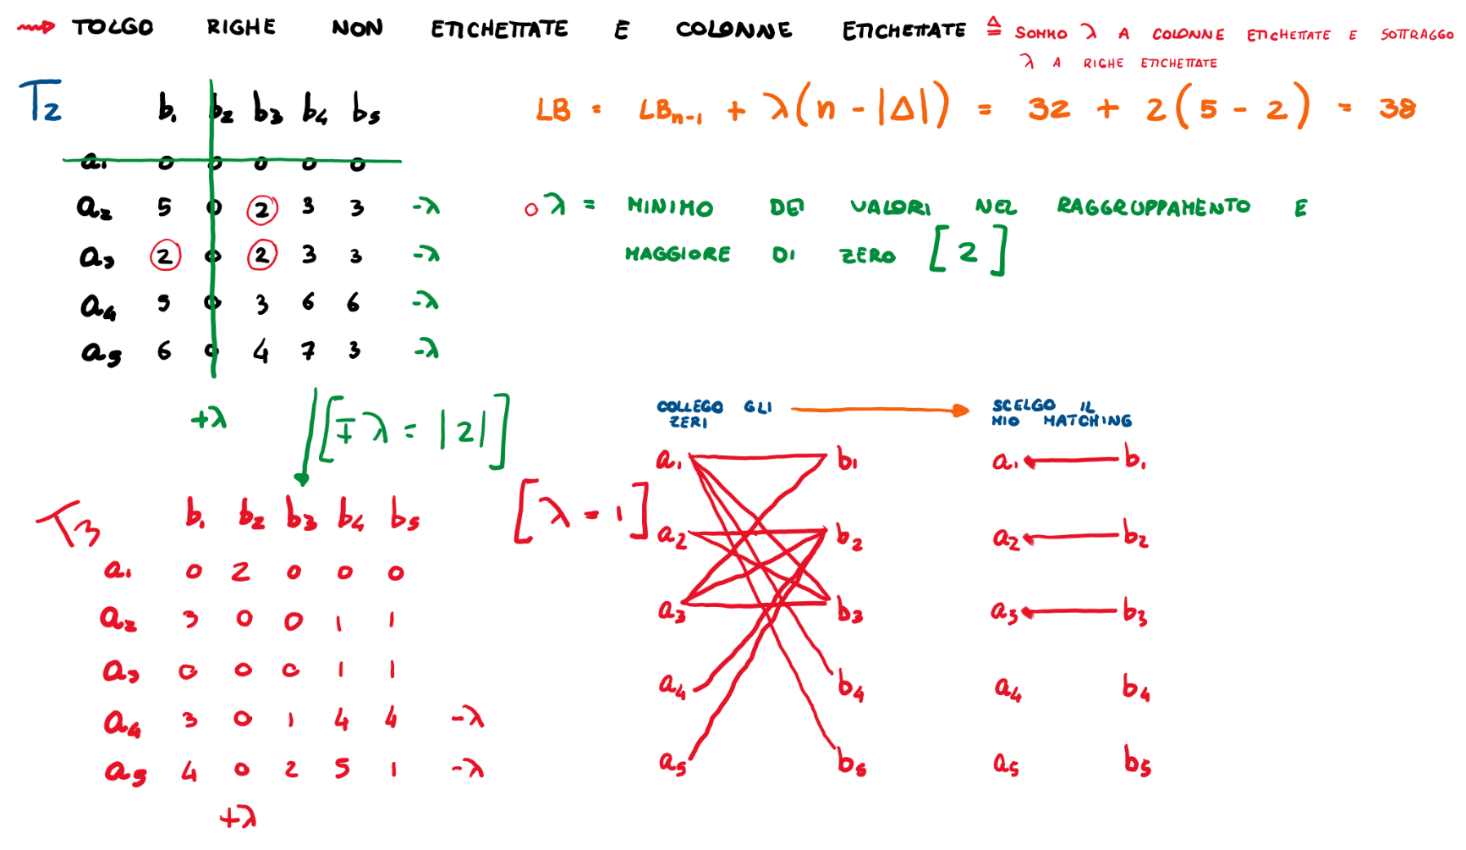 TOLGO RIGHE NON ETICHETTATE E COLONNE ETICHETTATE ≜ SOMMO λ A COLONNE ETICHETTATE E SOTTRAGGO
λ A RIGHE ETICHETTATE
T2
b1 b2 b3 b4 b5
a1 0 0 0 0 0
a2 5 0 2 3 3 -λ
a3 2 0 2 3 3 -λ
a4 5 0 3 6 6 -λ
a5 6 0 4 7 3 -λ
+λ
LB = LBn-1 + λ(n - |Δ|) = 32 + 2(5 - 2) = 38
λ = MINIMO DEI VALORI NEL RAGGRUPPAMENTO E
MAGGIORE DI ZERO [2]
[∓λ = |2|]
T3
b1 b2 b3 b4 b5
a1 0 2 0 0 0
a2 3 0 0 1 1
a3 0 0 0 1 1
a4 3 0 1 4 4 -λ
a5 4 0 2 5 1 -λ
+λ
[λ = 1]
COLLEGO GLI
ZERI
SCELGO IL
MIO MATCHING
a1 b1
a2 b2
a3 b3
a4 b4
a5 b5
a1 b1
a2 b2
a3 b3
a4 b4
a5 b5